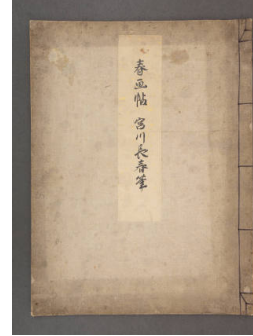 春画帖 宮川長春筆